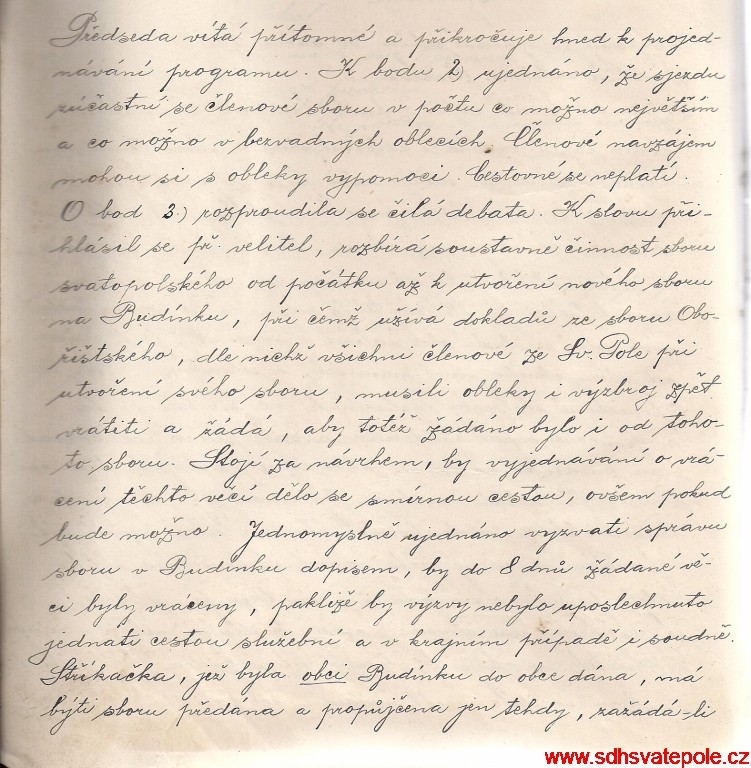 Předseda vítá přítomné a přikročuje hned k projed-
návání programu. K bodu 2) ujednáno, že sjezdu
zúčastní se členové sboru v počtu co možno největším
a co možno v bezvadných oblecích. Členové navzájem
mohou si s obleky vypomoci. Cestovné se neplatí.
O bod 3.) rozproudila se čilá debata. K slovu při-
hlásil se př. velitel, rozbírá soustavně činnost sboru
svatopolského od počátku až k utvoření nového sboru
na Budínku, při čemž užívá dokladů ze sboru Obo-
řištského, dle nichž všichni členové ze Sv. Pole při
utvoření svého sboru, musili obleky i výzbroj zpět
vrátiti a žádá, aby totéž žádáno bylo i od toho-
to sboru. Stojí za návrhem, by vyjednávání o vrá-
cení těchto věcí dělo se smírnou cestou, ovšem pokud
bude možno. Jednomyslně ujednáno vyzvati správu
sboru v Budínku dopisem, by do 8 dnů žádané vě-
ci byly vráceny, pakliže by výzvy nebylo uposlechnuto
jednati cestou služební a v krajním případě i soudně.
Stříkačka, jež byla obci Budínku do obce dána, má
býti sboru předána a propůjčena jen tehdy, zažádá-li
www.sdhsvatepole.cz